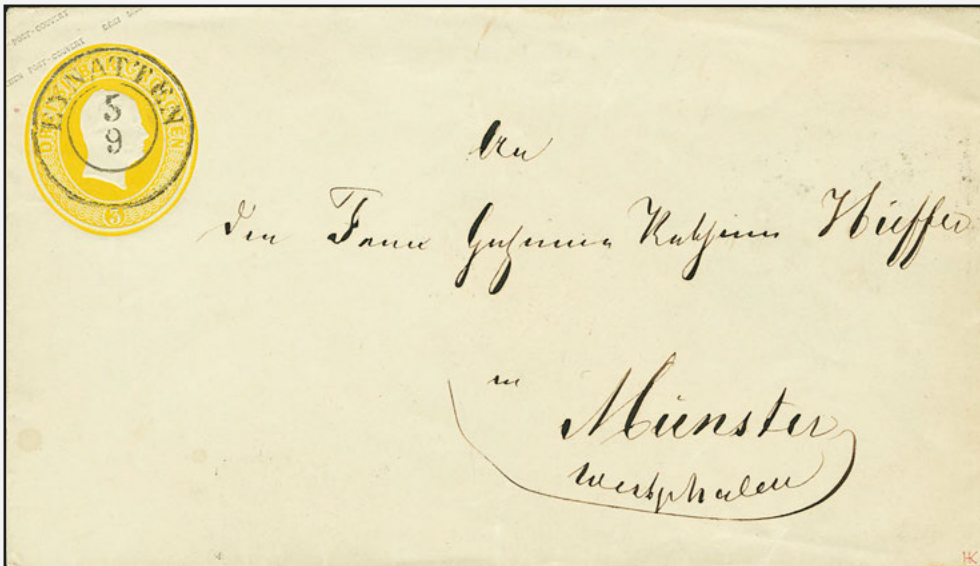 POST-COUVERT
POST-COUVERT
EYNATTEN
5
9
3
An
den Frau Geheimen Rathin Hüffer
in
Münster
Westphalen
HK